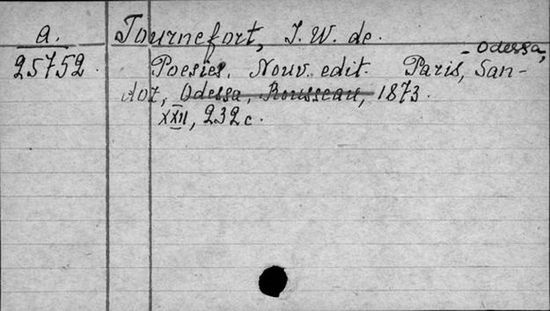 a. Tournefort, J. W. de.
- Odessa,
25752. Poesies. Nouv. edit. Paris, San-
doz, Odessa, Rousseau, 1873.
XXII, 232 c.